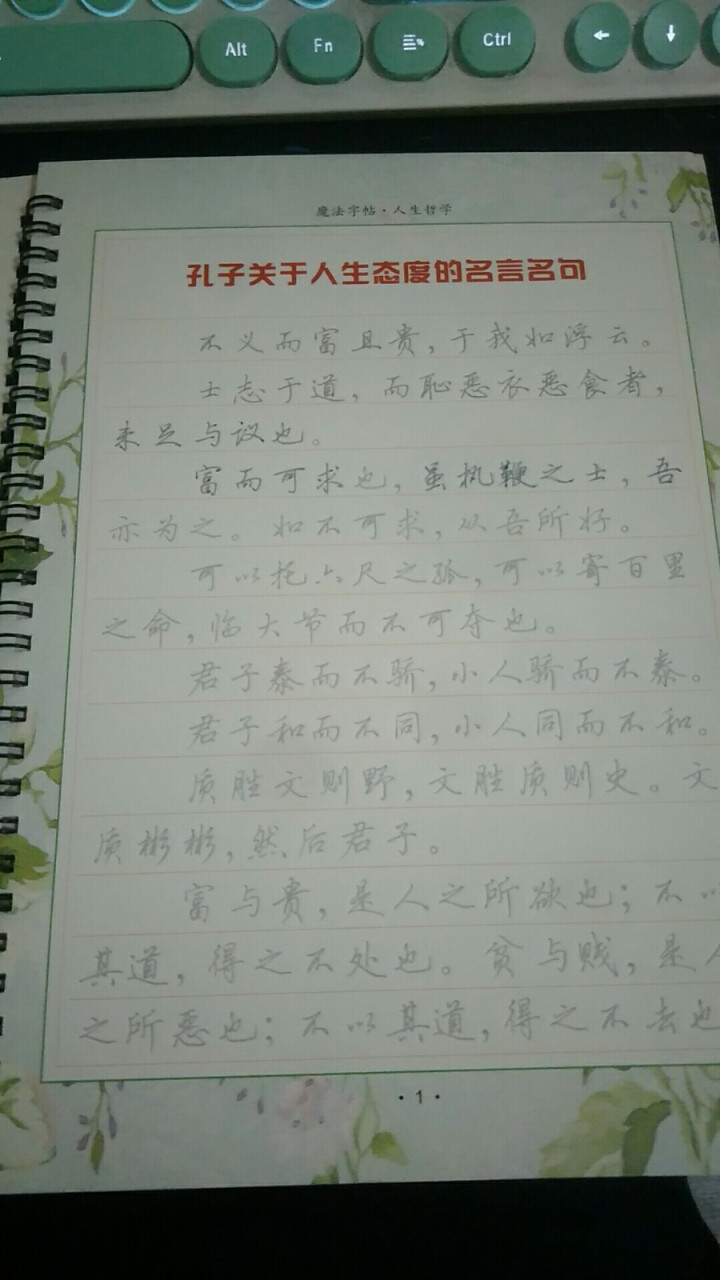 Alt Fn Ctrl ← ↓
魔法字帖·人生哲学
孔子关于人生态度的名言名句
不义而富且贵,于我如浮云。
士志于道,而耻恶衣恶食者,
未足与议也。
富而可求也,虽执鞭之士,吾
亦为之。如不可求,从吾所好。
可以托六尺之孤,可以寄百里
之命,临大节而不可夺也。
君子泰而不骄,小人骄而不泰。
君子和而不同,小人同而不和。
质胜文则野,文胜质则史。文
质彬彬,然后君子。
富与贵,是人之所欲也;不以
其道,得之不处也。贫与贱,是人
之所恶也;不以其道,得之不去也
·1·